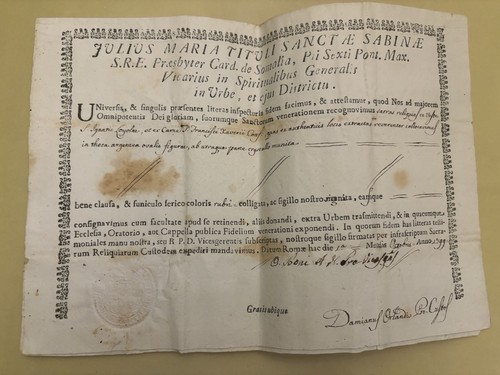 JULIUS MARIA TITULI SANCTÆ SABINÆ
S.R.E. Presbyter Card. de Somalia, Pii Sexti Pont. Max.
Vicarius in Spiritualibus Generalis
in Urbe, et ejus Districtu.
Universis, & singulis præsentes literas inspecturis fidem facimus, & attestamur, quod Nos ad majorem
Omnipotentis Dei gloriam, suorumque Sanctorum venerationem recognovimus sacras reliquias ex
S. Ignatii Loyolæ, et ex Francisci Xaverii Conf. quas ex authenticis locis extractas reverenter collocavimus
in theca argentea ovalis figuræ, ab utraque parte crystallo munita
bene clausa, & funiculo serico coloris rubri colligata, ac sigillo nostro signata, eamque
consignavimus cum facultate apud se retinendi, aliis donandi, extra Urbem trasmittendi, & in quacumque
Ecclesia, Oratorio, aut Cappella publica Fidelium venerationi exponendi. In quorum fidem has literas testi-
moniales manu nostra, seu R.P.D. Vicesgerentis subscriptas, nostroque sigillo firmatas per infrascriptum Sacra-
rum Reliquiarum Custodem expediri mandavimus. Datum Romæ hac die Mensis Anno
Gratis ubique
Damianus